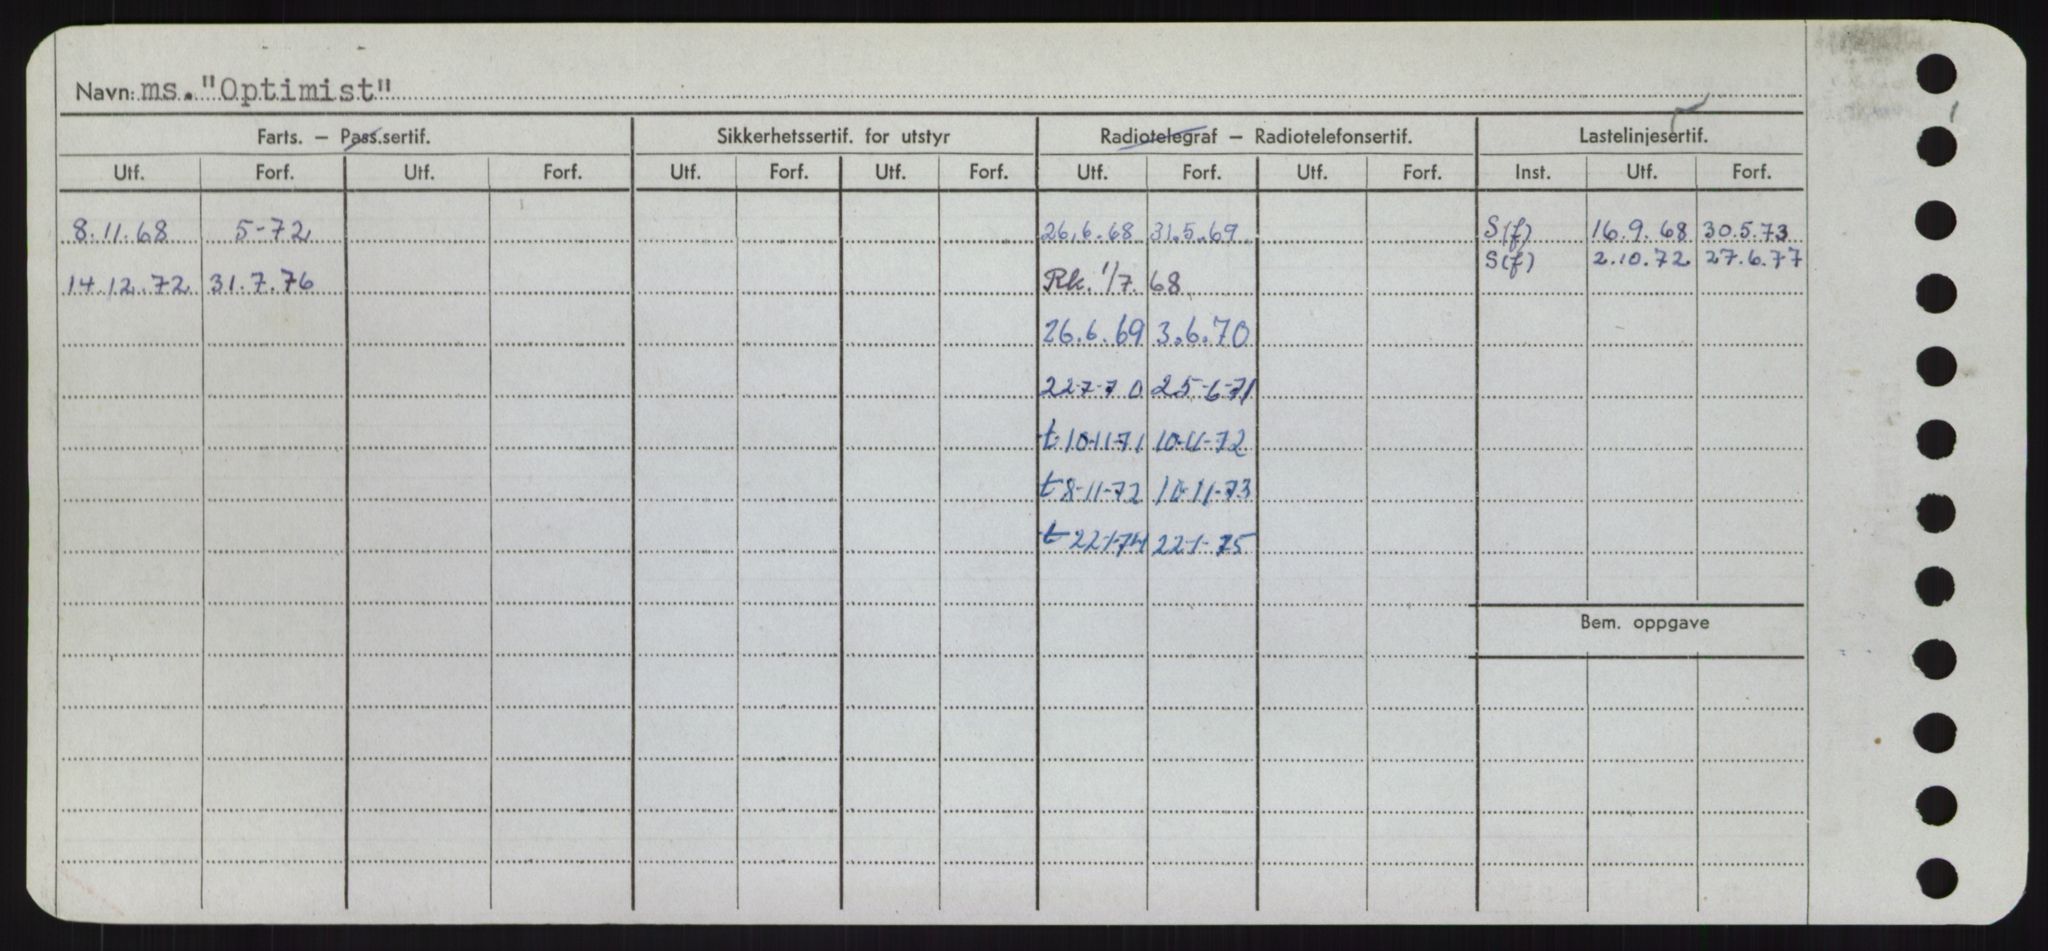 Navn: ms. "Optimist"
Farts. – Pass.sertif. Sikkerhetssertif. for utstyr Radiotelegraf – Radiotelefonsertif. Lastelinjesertif.
Utf. Forf. Utf. Forf. Utf. Forf. Utf. Forf. Utf. Forf. Utf. Forf. Inst. Utf. Forf.
8.11.68 5-72 26.6.68 31.5.69 S(f) 16.9.68 30.5.73
S(f) 2.10.72 27.6.77
14.12.72 31.7.76 Rk. 1/7. 68
26.6.69 3.6.70
22-7-70 25-6-71
t 10-11-71 10-11-72
t 8-11-72 10-11-73
t 22-1-74 22-1-75
Bem. oppgave